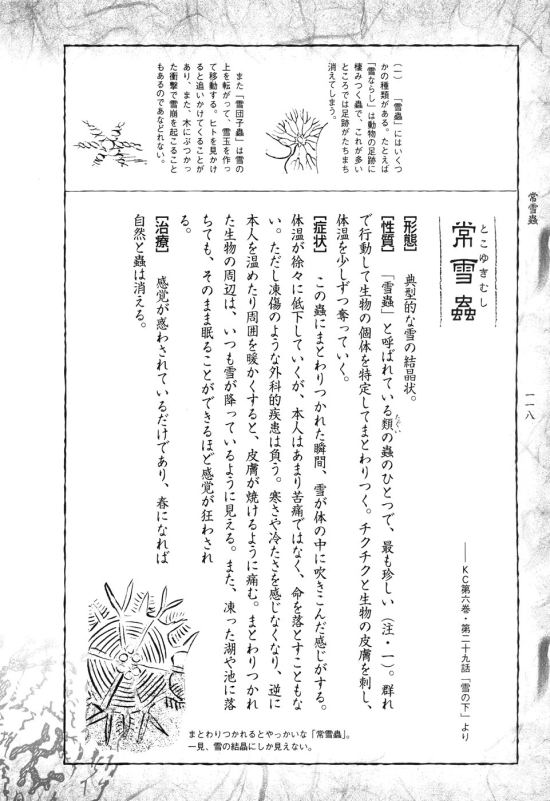 常雪蟲
一一八
とこゆきむし
常雪蟲
――KC第六巻・第二十九話「雪の下」より
[形態]　典型的な雪の結晶状。
[性質]　「雪蟲」と呼ばれている類の蟲のひとつで、最も珍しい（注・一）。群れ
たぐい
で行動して生物の個体を特定してまとわりつく。チクチクと生物の皮膚を刺し、
体温を少しずつ奪っていく。
[症状]　この蟲にまとわりつかれた瞬間、雪が体の中に吹きこんだ感じがする。
体温が徐々に低下していくが、本人はあまり苦痛ではなく、命を落とすこともな
い。ただし凍傷のような外科的疾患は負う。寒さや冷たさを感じなくなり、逆に
本人を温めたり周囲を暖かくすると、皮膚が焼けるように痛む。まとわりつかれ
た生物の周辺は、いつも雪が降っているように見える。また、凍った湖や池に落
ちても、そのまま眠ることができるほど感覚が狂わされ
る。
[治療]　感覚が惑わされているだけであり、春になれば
自然と蟲は消える。
（一）　「雪蟲」にはいくつ
かの種類がある。たとえば
「雪ならし」は動物の足跡に
棲みつく蟲で、これが多い
ところでは足跡がたちまち
消えてしまう。
また「雪団子蟲」は雪の
上を転がって、雪玉を作っ
て移動する。ヒトを見かけ
ると追いかけてくることが
あり、また、木にぶつかっ
た衝撃で雪崩を起こすこと
もあるのであなどれない。
まとわりつかれるとやっかいな「常雪蟲」。
一見、雪の結晶にしか見えない。